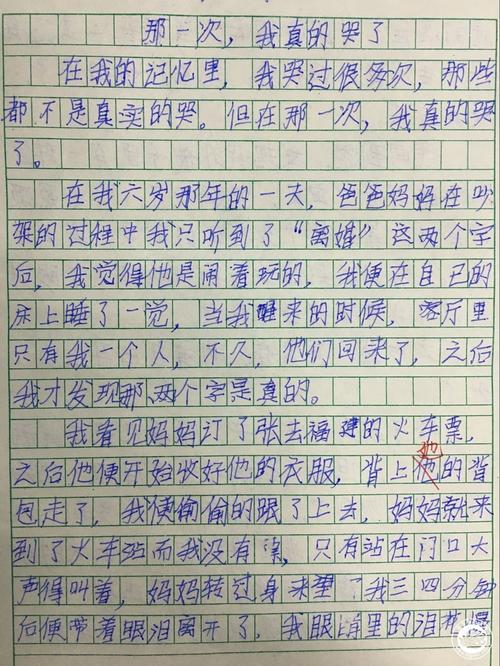 那一次，我真的哭了
在我的记忆里，我哭过很多次，那些
都不是真实的哭。但在那一次，我真的哭
了。
在我六岁那年的一天，爸爸妈妈在吵
架的过程中我只听到了“离婚”这两个字
后，我觉得他是闹着玩的，我便在自己的
床上睡了一觉，当我醒来的时候，客厅里
只有我一个人，不久，他们回来了，之后
我才发现那两个字是真的。
我看见妈妈订了张去福建的火车票，
之后他便开始收好他的衣服，背上他的背
她
包走了，我便偷偷的跟了上去，妈妈就来
到了火车站而我没有票，只有站在门口大
声得叫着，妈妈转过身来望了我三四分钟
后便带着眼泪离开了，我眼睛里的泪